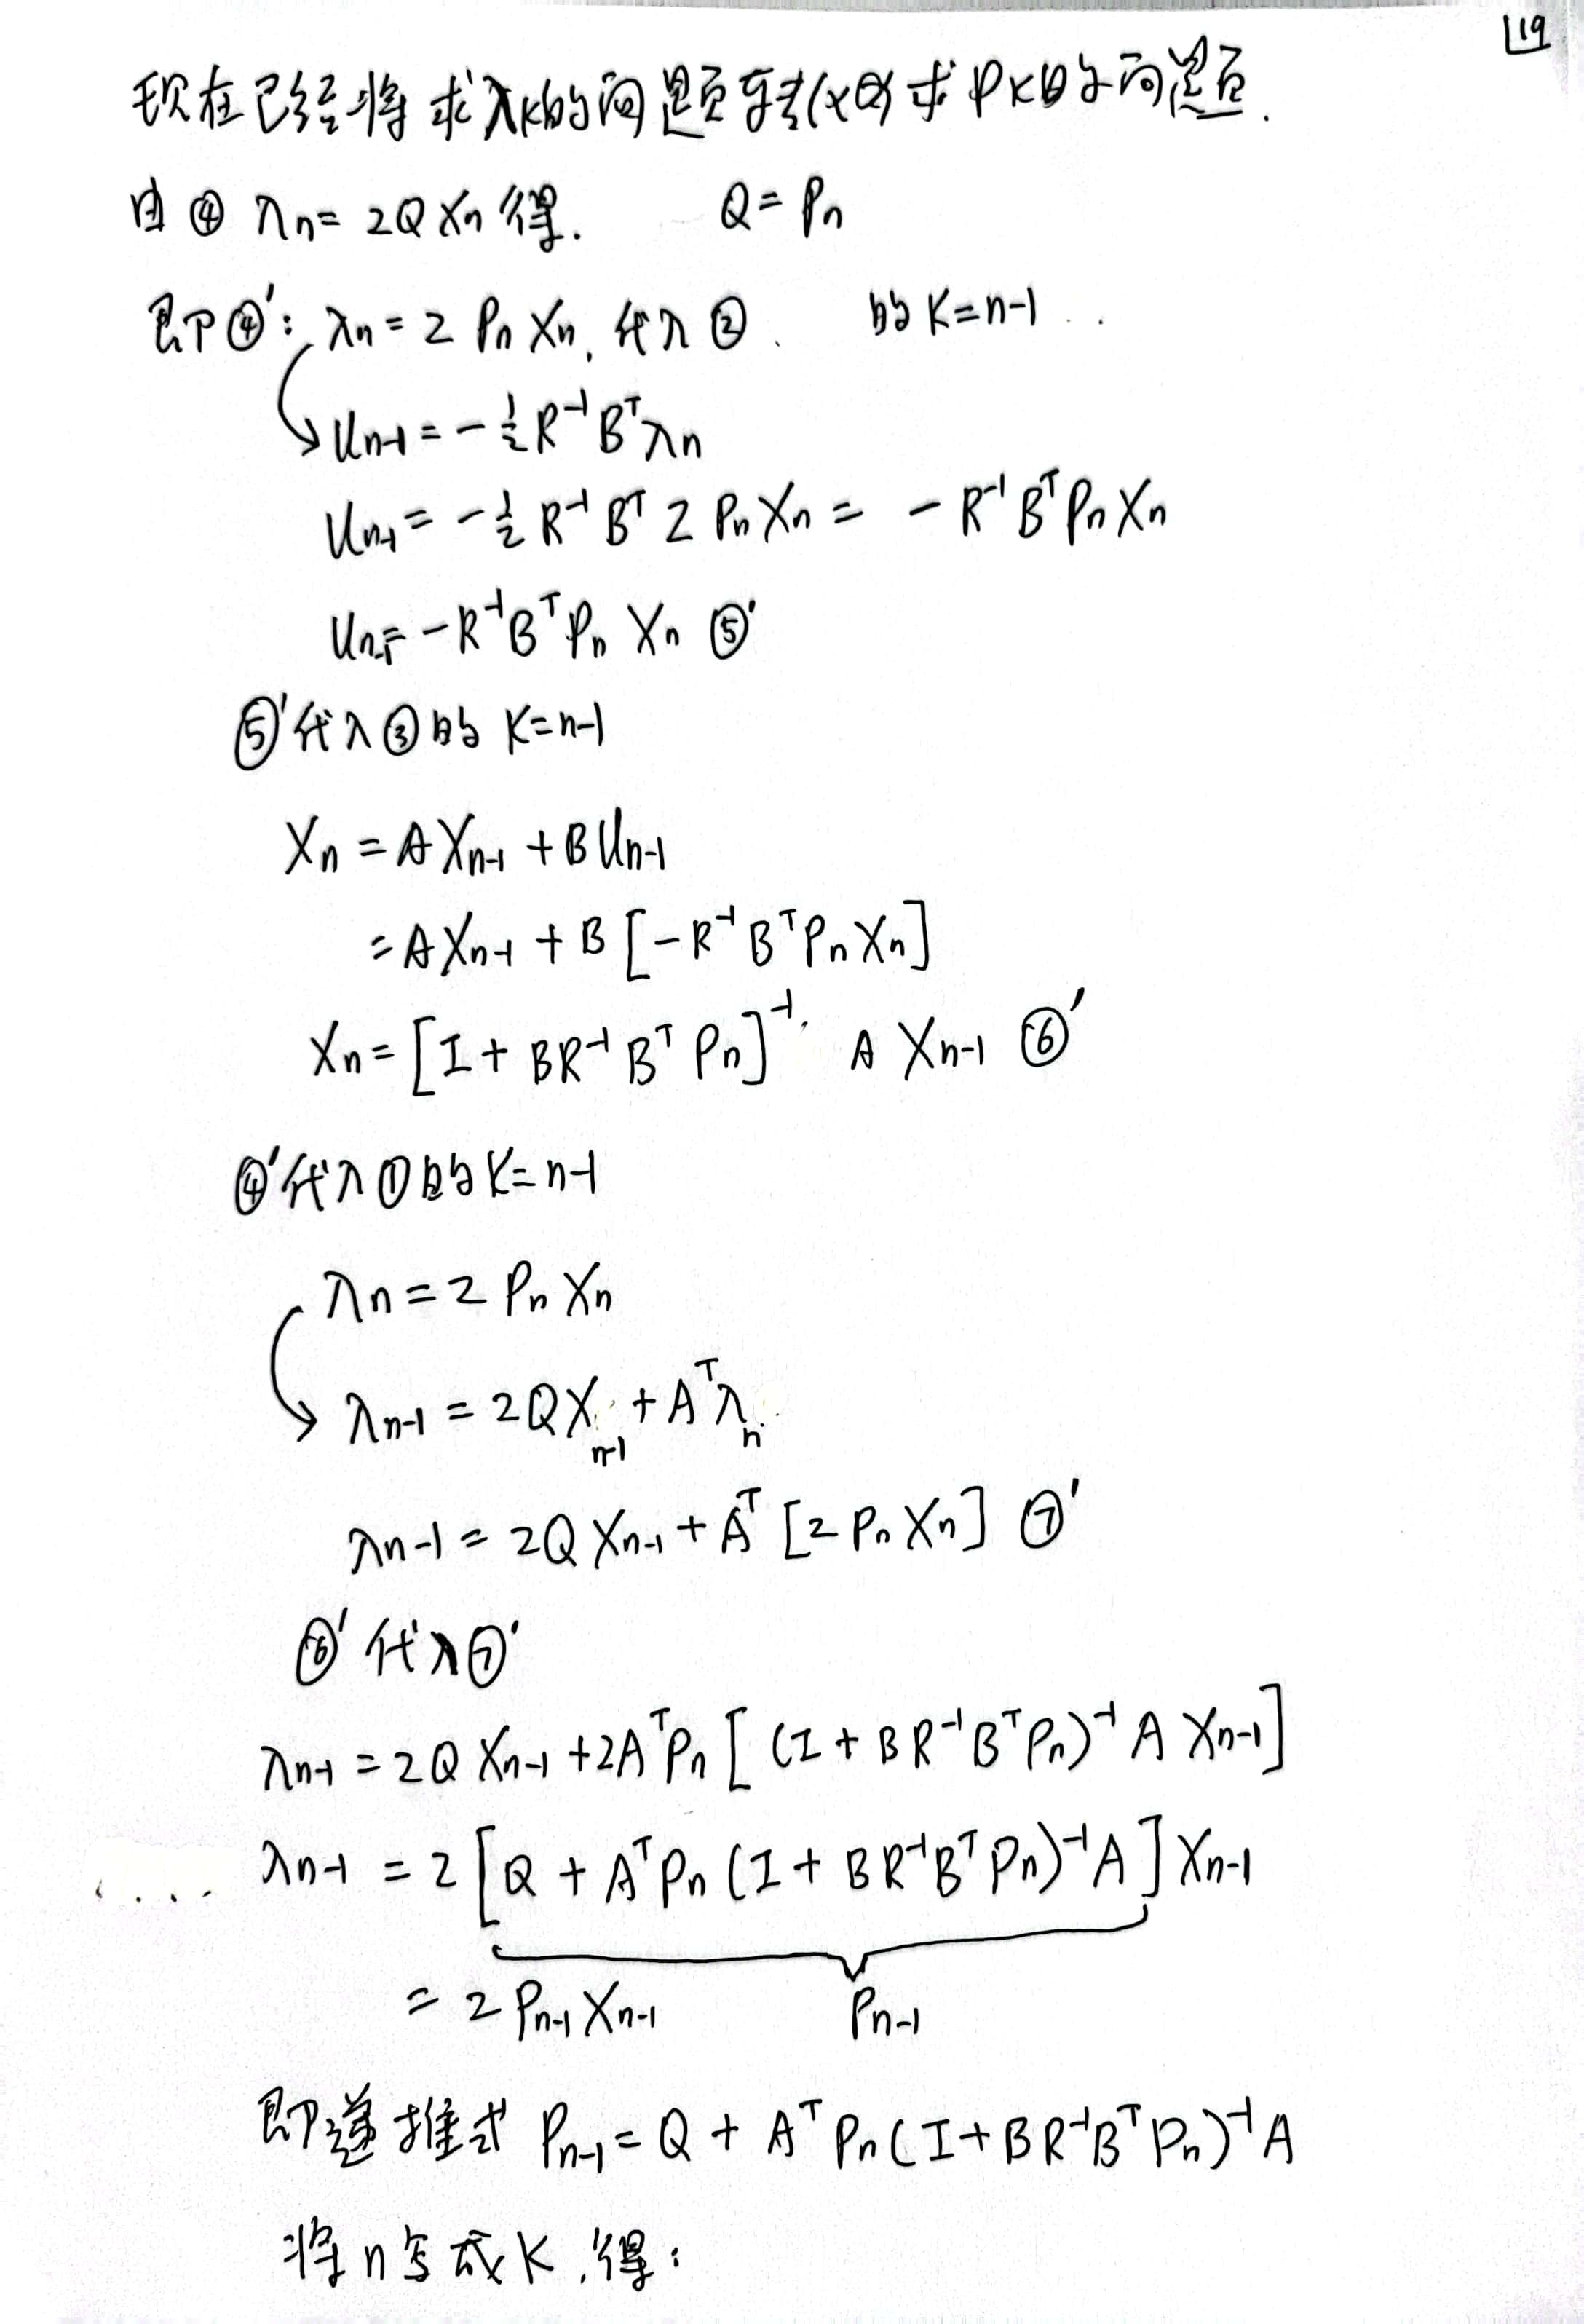 19
现在已经将求λk的问题转化为求Pk的问题.
由④ λn=2QXn得. Q=Pn
即④': λn=2PnXn, 代入② 的K=n-1
Un-1=-½R⁻¹Bᵀλn
Un-1=-½R⁻¹Bᵀ2PnXn=-R⁻¹BᵀPnXn
Un-1=-R⁻¹BᵀPnXn ⑤'
⑤'代入③的K=n-1
Xn=AXn-1+BUn-1
=AXn-1+B[-R⁻¹BᵀPnXn]
Xn=[I+BR⁻¹BᵀPn]⁻¹AXn-1 ⑥'
④'代入①的K=n-1
λn=2PnXn
λn-1=2QXn-1+Aᵀλn
λn-1=2QXn-1+Aᵀ[2PnXn] ⑦'
⑥'代入⑦'
λn-1=2QXn-1+2AᵀPn[(I+BR⁻¹BᵀPn)⁻¹AXn-1]
λn-1=2[Q+AᵀPn(I+BR⁻¹BᵀPn)⁻¹A]Xn-1
=2Pn-1Xn-1 Pn-1
即递推式 Pn-1=Q+AᵀPn(I+BR⁻¹BᵀPn)⁻¹A
将n写成K,得: